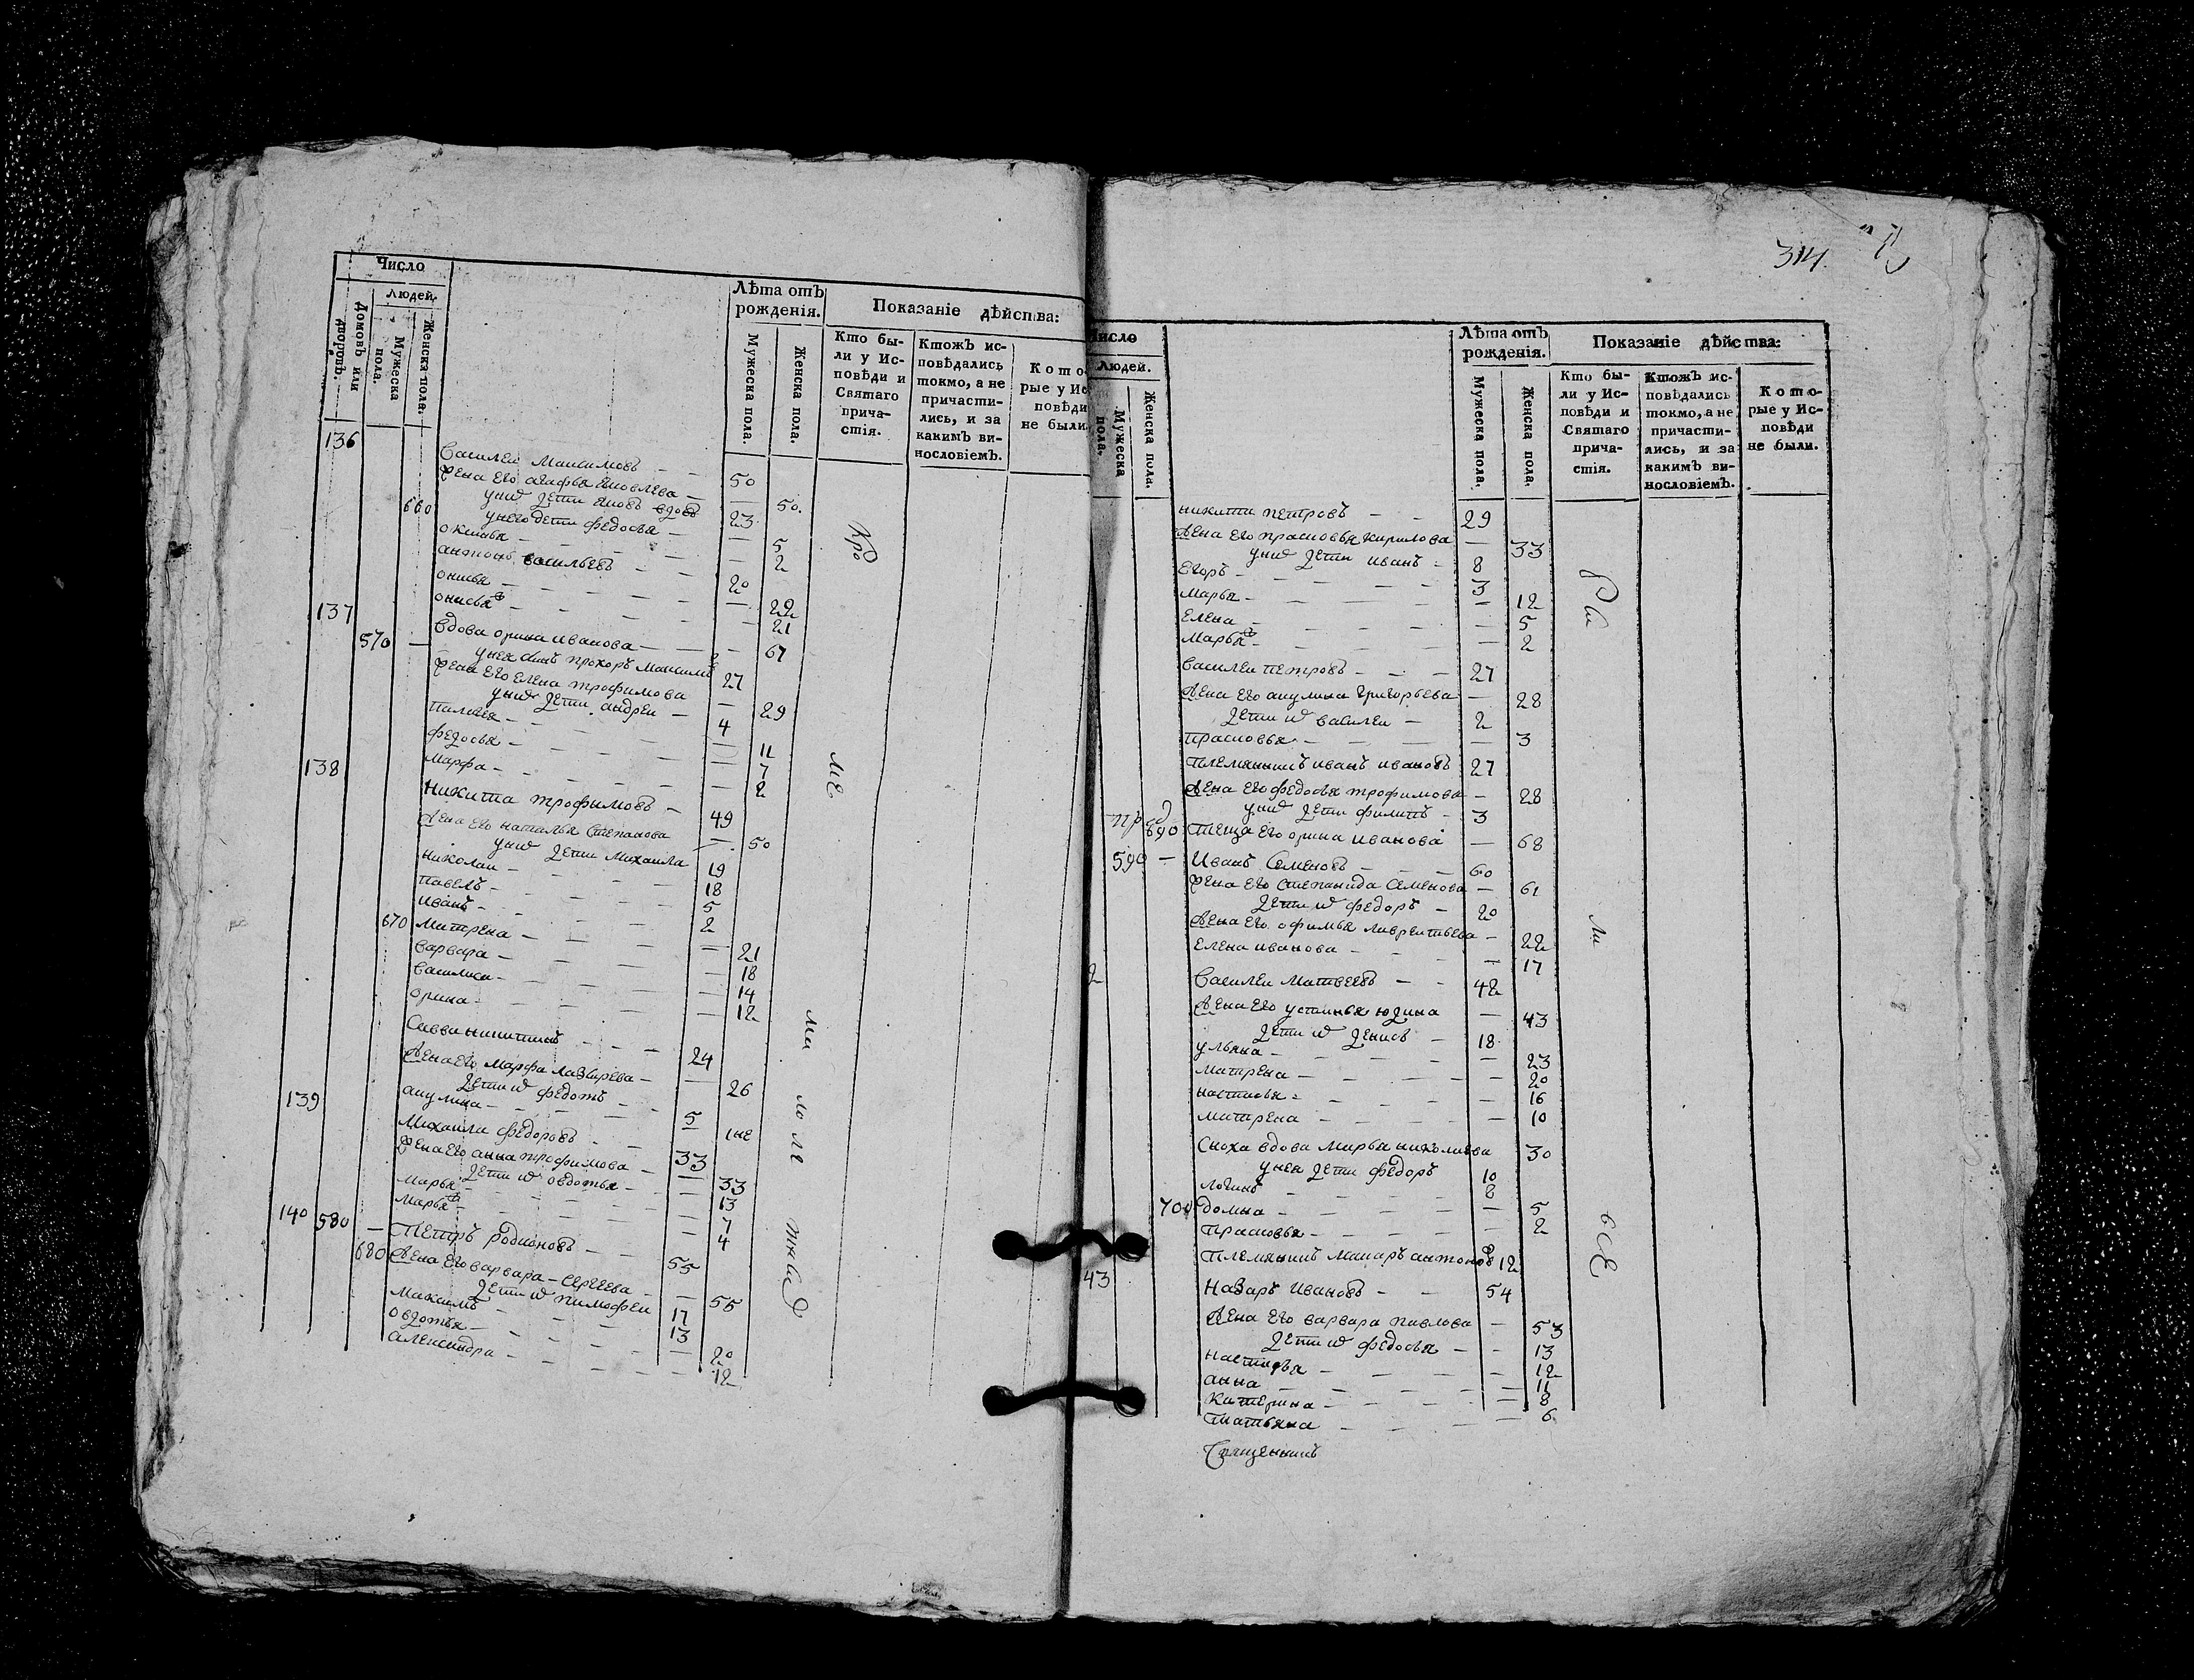 Число
Людей.
Домовъ или дворовъ.
Мужеска пола.
Женска пола.
Лѣта отъ рожденія.
Мужеска пола.
Женска пола.
Показаніе дѣйства:
Кто бы-
ли у Ис-
повѣди и
Святаго
прича-
стія.
Ктожъ ис-
повѣдались
токмо, а не
причасти-
лись, и за
какимъ ви-
нословіемъ.
Кото-
рые у Ис-
повѣди
не были.
136
Василеи Максимовъ — — 50
Жена его агафья Яковлева — — 50.
у них дети Яковъ вдовъ 23
660 у него дети федосья — — 5
оксинья — — 2
антонъ васильевъ — — 20
онисья — — 22
онисья — — 21
137
вдова орина иванова — — 67
570 — у нея сынъ прохоръ Максимовъ 27
Жена его елена трофимова — 29
у них дети андреи — 4
палагея — — 11
федосья — — 7
марфа — — 2
138
Никита трофимовъ — 49
Жена его наталья степанова — 50
у них дети Михаила 19
николаи — — 18
павелъ — — 5
иванъ — — 2
670 матрена — — 21
варвара — — 18
василиса — — 14
орина — — 12
Савва никитинъ — — 24
Жена его марфа лазарева — — 26
дети их федотъ — — 5
акулина — —
139
Михаила федоровъ — — 33
Жена его анна трофимова — — 33
дети их овдотья — — 13
марья — — 7
марья — — 4
140 580 — Петръ родионовъ — — 55
680 Жена его варвара — сергеева — — 55
дети их тимофеи 17
максимъ — — 13
овдотья — — 20
александра — — 12
314.
Число
Людей.
Мужеска пола.
Женска пола.
Лѣта отъ рожденія.
Мужеска пола.
Женска пола.
Показаніе дѣйства:
Кто бы-
ли у Ис-
повѣди и
Святаго
прича-
стія.
Ктожъ ис-
повѣдались
токмо, а не
причасти-
лись, и за
какимъ ви-
нословіемъ.
Кото-
рые у Ис-
повѣди
не были.
никита петровъ — — 29
Жена его прасковья кирилова — 33
у них дети иванъ — 8
Егоръ — — 3
Марья — — 12
Елена — — 5
Марья — — 2
василеи петровъ — — 27
Жена его акулина григорьева — 28
дети их василеи — 2
прасковья — — 3
племянникъ иванъ ивановъ 27
Жена его федосья трофимова — 28
у них дети филипъ — 3
690 теща его орина иванова — 68
590 — Иванъ Семеновъ — — 60
Жена его степанида семенова — 61
дети их федоръ — 20
Жена его офимья лаврентьева — 22
Елена иванова — — 17
2 василеи матвеевъ — — 42
Жена его устинья юдина — 43
дети их денисъ — 18
ульяна — — 23
матрена — — 20
настасья — — 16
матрена — — 10
сноха вдова марья николаева 30
у нея дети федоръ 10
логинъ — — 8
700 домна — — 5
прасковья — — 2
племянникъ макаръ антоновъ 12
43 Назаръ Ивановъ — — 54
Жена его варвара павлова — 53
дети их федосья — — 13
настасья — — 12
анна — — 11
катерина — — 8
татьяна — — 6
Священникъ